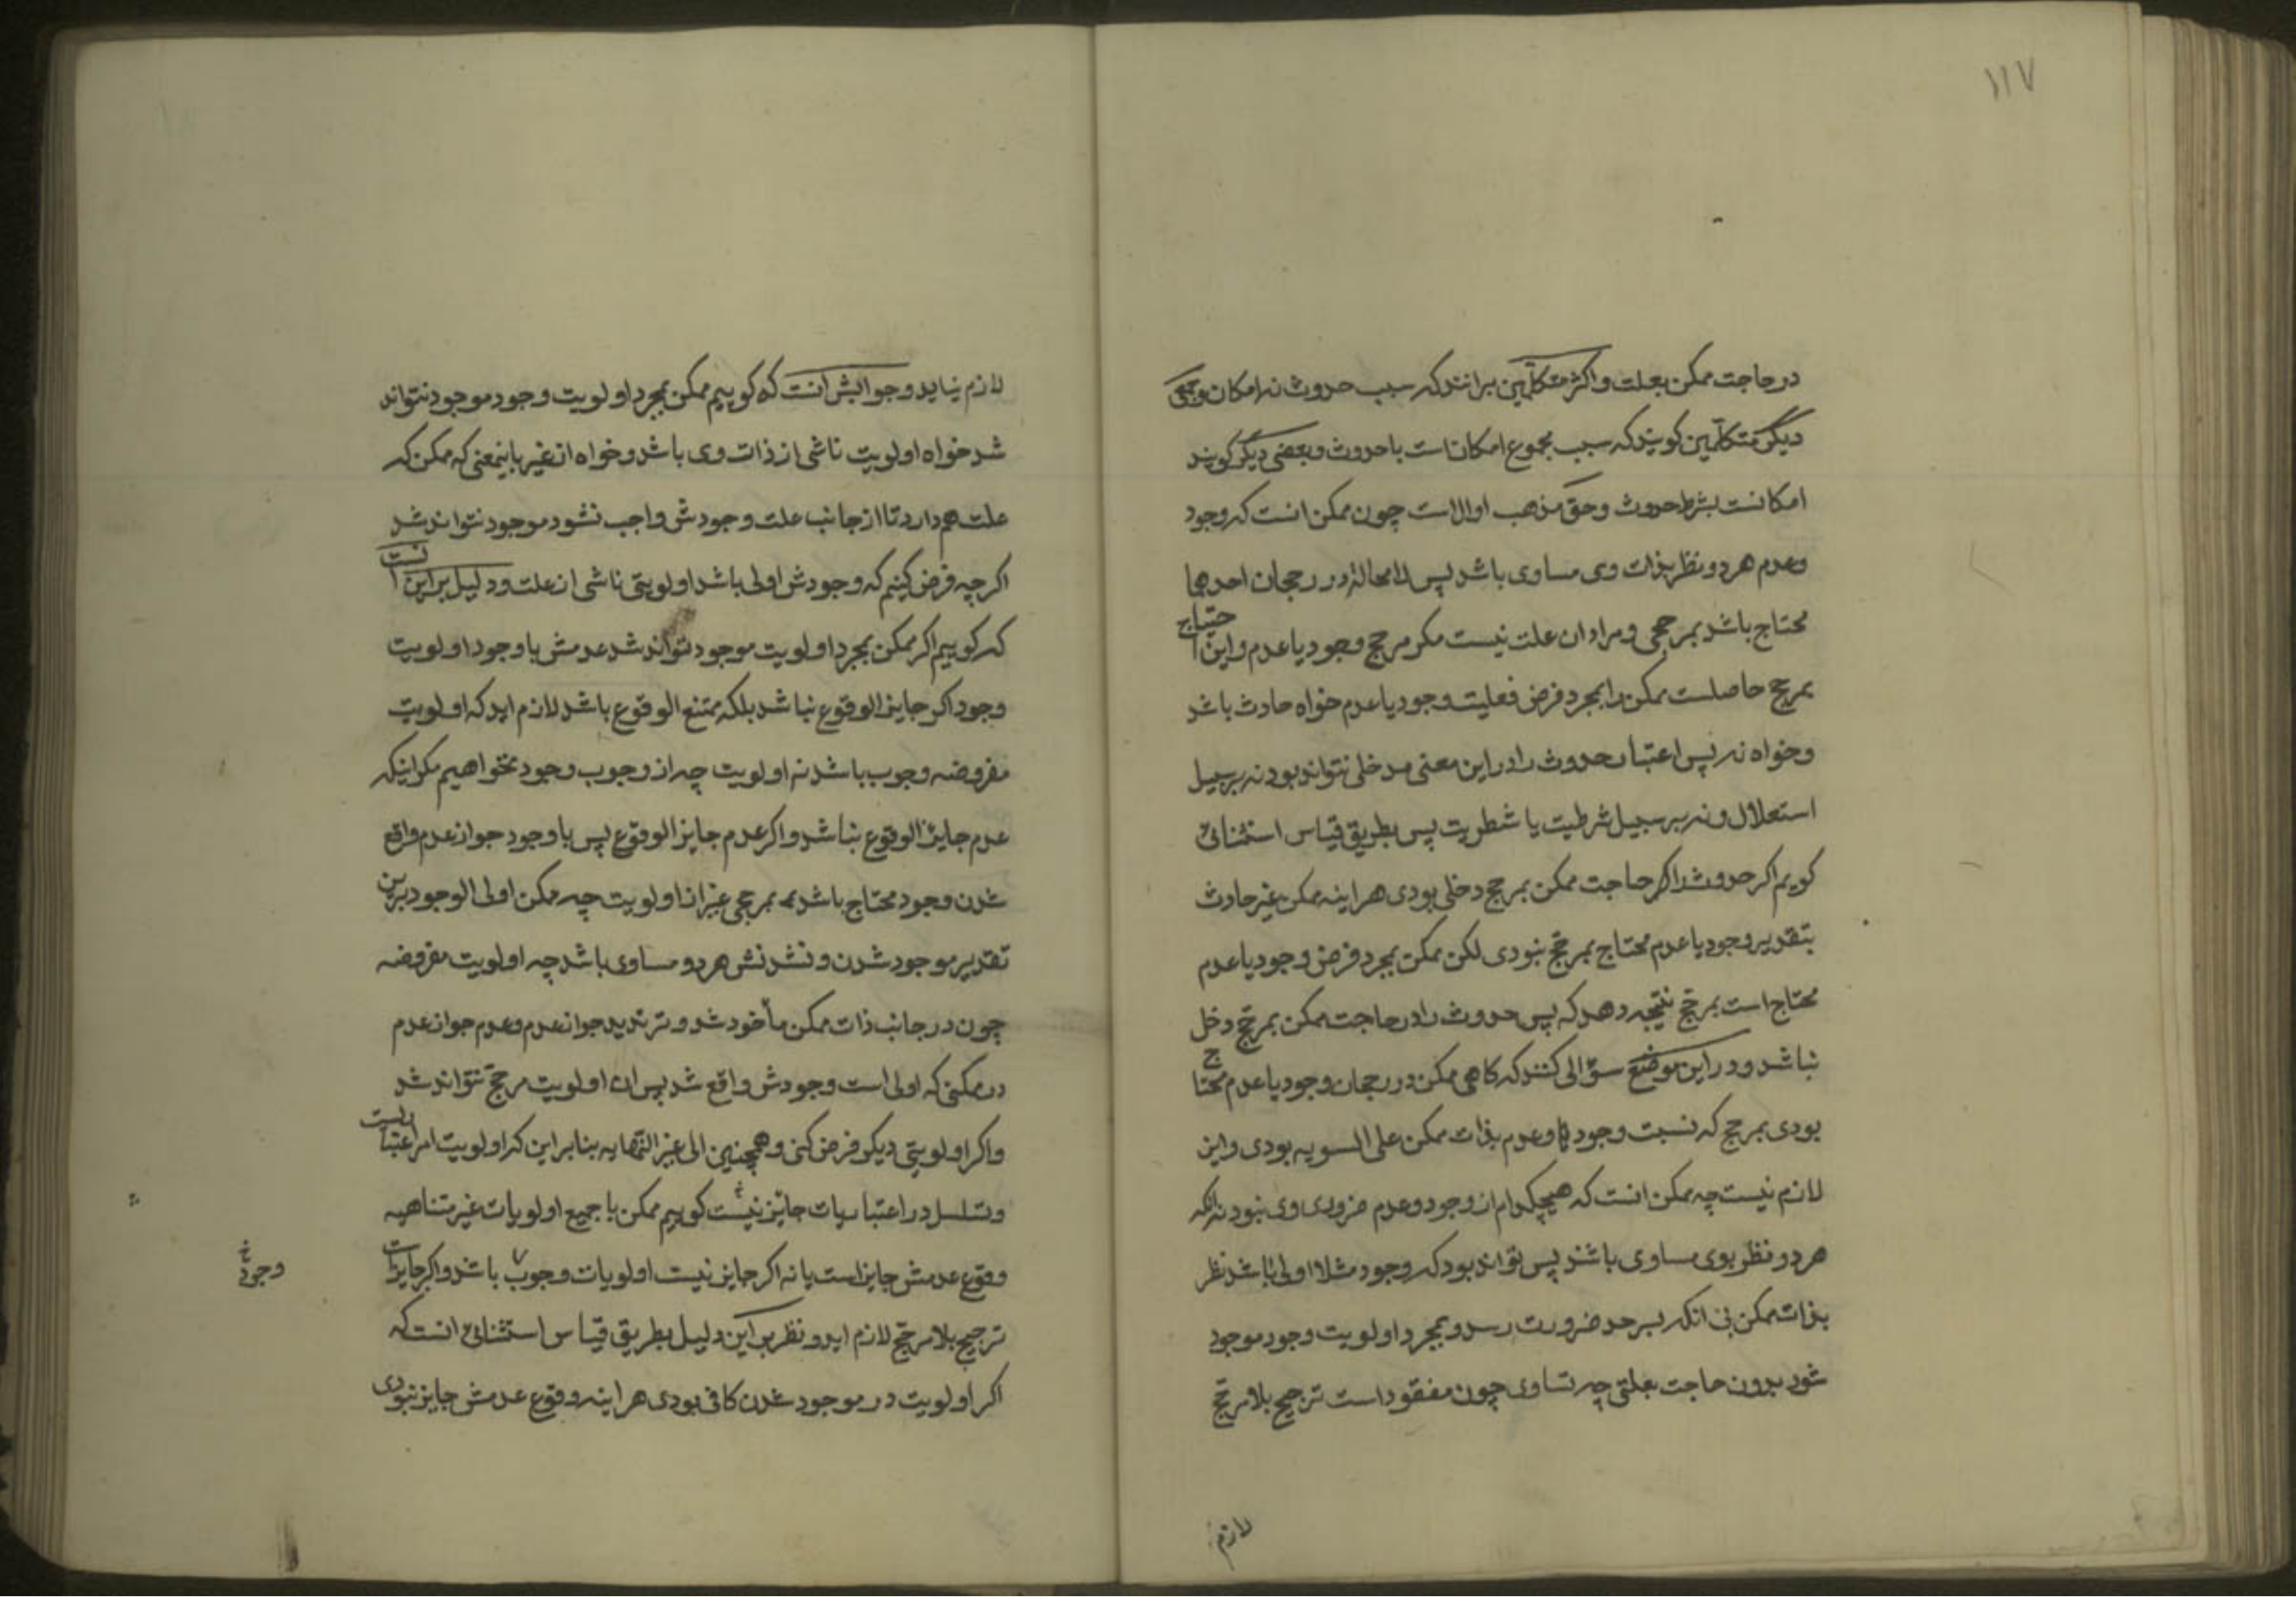 ۱۱۷
در حاجت ممکن بعلت و اکثر متکلمین برانند که سبب حدوث نه امکان و بعضی
دیکر متکلمین کویند که سبب مجموع امکانست با حدوث و بعضی دیکر کویند
امکانست بشرط حدوث و حق مذهب اولاست چون ممکن انست که وجود
وعدم هر دو نظر بذات وی مساوی باشد پس لا محاله در رجحان احدهما
محتاج باشد بمرجحی و مراد از علت نیست مکر مرجح وجود یا عدم و این احتیاج
بمرجح حاصلست ممکن را بمجرد فرض فعلیت وجود یا عدم خواه حادث باشد
وخواه نه پس اعتبار حدوث را در این معنی مدخلی نتواند بود نه بر سبیل
استعلال و نه بر سبیل شرطیت یا شطریت پس بطریق قیاس استثنائی
کویم اکر حدوث را در حاجت ممکن بمرجح دخلی بودی هراینه ممکن غیر حادث
بتقدیر وجود یا عدم محتاج بمرجح نبودی لکن ممکن بمجرد فرض وجود یا عدم
محتاج است بمرجح نتیجه دهد که پس حدوث را در حاجت ممکن بمرجح دخل
نباشد و در این موضع سؤالی کنند که کاهی ممکن در رجحان وجود یا عدم محتاج
بودی بمرجح که نسبت وجود و عدم بذات ممکن علی السویه بودی و این
لازم نیست چه ممکن انست که هیچکدام از وجود و عدم ضروری وی نبود نه انکه
هر دو نظر بوی مساوی باشند پس تواند بود که وجود مثلا اولی باشد نظر
بذات ممکن بی انکه بسر حد ضرورت رسد و بمجرد اولویت وجود موجود
شود بدون حاجت بعلتی چه تساوی چون مفقود است ترجیح بلا مرجح
لازم
لازم نیاید و جوابش آنست که کوییم ممکن بمجرد اولویت وجود موجود نتواند
شد خواه اولویت ناشی از ذات وی باشد و خواه از غیر باینمعنی که ممکن که
علت هم دارد تا از جانب علت وجودش واجب نشود موجود نتواند شد
اکر چه فرض کنیم که وجودش اولی باشد اولویتی ناشی از علت و دلیل بر این انست
که کوییم اکر ممکن بمجرد اولویت موجود تواند شد عدمش با وجود اولویت
وجود اکر جایز الوقوع نباشد بلکه ممتنع الوقوع باشد لازم اید که اولویت
مفروضه وجوب باشد نه اولویت چه از وجوب وجود نخواهیم مکر اینکه
عدم جایز الوقوع نباشد و اکر عدم جایز الوقوع پس با وجود جواز عدم واقع
شدن وجود محتاج باشد بمرجحی غیر از اولویت چه ممکن اولی الوجود برین
تقدیر موجود شدن و نشدنش هر دو مساوی باشد چه اولویت مفروضه
چون در جانب ذات ممکن مأخود شد و تردید جواز عدم و عدم جواز عدم
در ممکنی که اولی است وجودش واقع شد پس ان اولویت مرجح نتواند شد
واکر اولویتی دیکر فرض کنی و همچنین الی غیر النهایه بنابر این که اولویت امر اعتباریست
وتسلسل در اعتباریات جایز نیست کوییم ممکن با جمیع اولویات غیر متناهیه
وقوع عدمش جایز است یا نه اکر جایز نیست اولویات وجوب باشد و اکر جایز است
وجود خ
ترجیح بلا مرجح لازم اید و نظر بر این دلیل بطریق قیاس استثنائی انست که
اکر اولویت در موجود شدن کافی بودی هراینه وقوع عدمش جایز نبودی